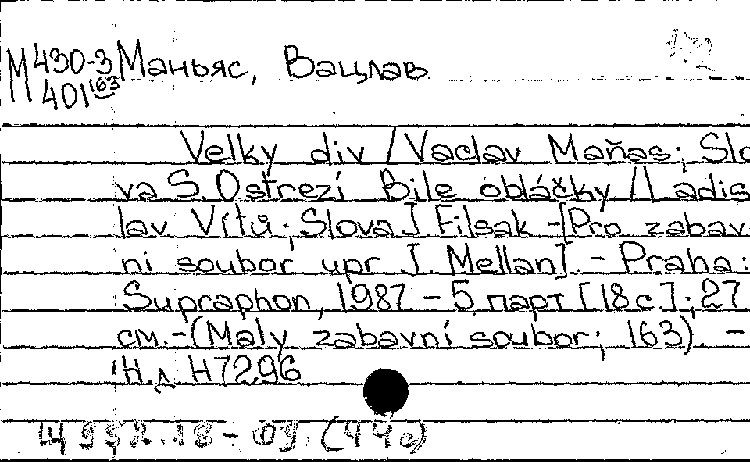 М430-3 Маньяс, Вацлав
401 163
Velky div / Vaclav Maňas; Slo
va S. Ostrezí Bile obláčky / Ladis
lav Vítů; Slova J Filsak -[Pro zabav
ni soubor upr J. Mellan]. - Praha:
Supraphon, 1987 - 5 парт [18 с]; 27
см. - (Maly zabavní soubor; 163). -
Н.д. H7296